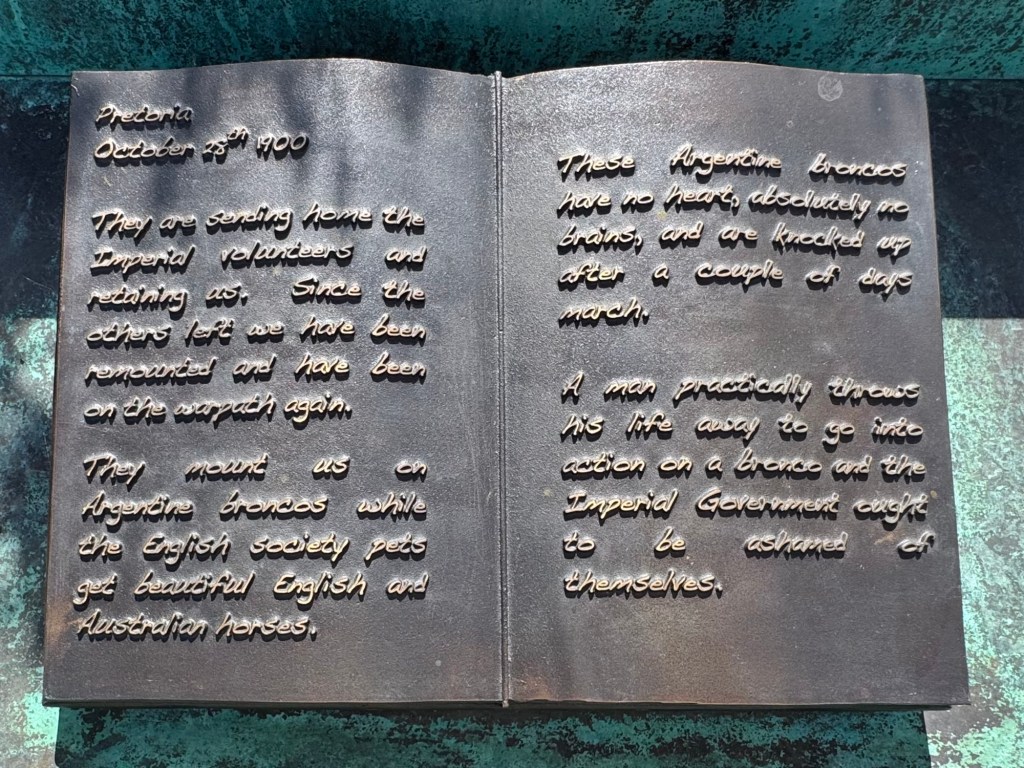 Pretoria
October 28th 1900
They are sending home the
Imperial volunteers and
retaining us. Since the
others left we have been
remounted and have been
on the warpath again.
They mount us on
Argentine broncos while
the English society pets
get beautiful English and
Australian horses.
These Argentine broncos
have no heart, absolutely no
brains, and are knocked up
after a couple of days
march.
A man practically throws
his life away to go into
action on a bronco and the
Imperial Government ought
to be ashamed of
themselves.